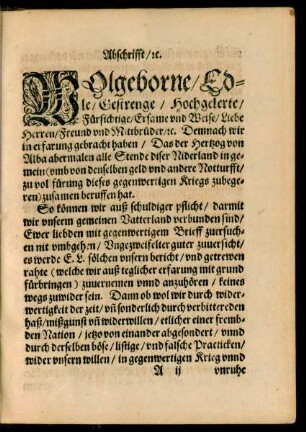 Abschrifft/ꝛc.
WOlgeborne/Ed-
le/Gestrenge/Hochgelerte/
Fürsichtige/Ersame vnd Weise/Liebe
Herren/Freund vnd Mitbrüder/ꝛc. Demnach wir
in erfarung gebracht haben/Das der Hertzog von
Alba abermalen alle Stende diser Niderland in ge-
mein (vmb von denselben geld vnd andere Notturfft/
zu vol fürung dieses gegenwertigen Kriegs zubege-
ren) zusamen beruffen hat.
So können wir auß schuldiger pflicht/darmit
wir vnserm gemeinen Vatterland verbunden sind/
Ewer liebden mit gegenwertigem Brieff zuersuch-
en nit vmbgehn/Vngezweifelter guter zuuersicht/
es werde E. L. sölchen vnsern bericht/vnd getrewen
rahte (welche wir auß teglicher erfarung mit grund
fürbringen) zuuernemen vnnd anzuhören/keines
wegs zuwider sein. Dann ob wol wir durch wider-
wertigkeit der zeit/vñ sonderlich durch verbitterten
haß/mißgunst vñ widerwillen/etlicher einer fremb-
den Nation/jetzo von einander abgesondert/vnnd
durch derselben böse/listige/vnd falsche Practicken/
wider vnsern willen/in gegenwertigen Krieg vnnd
A ij vnruhe